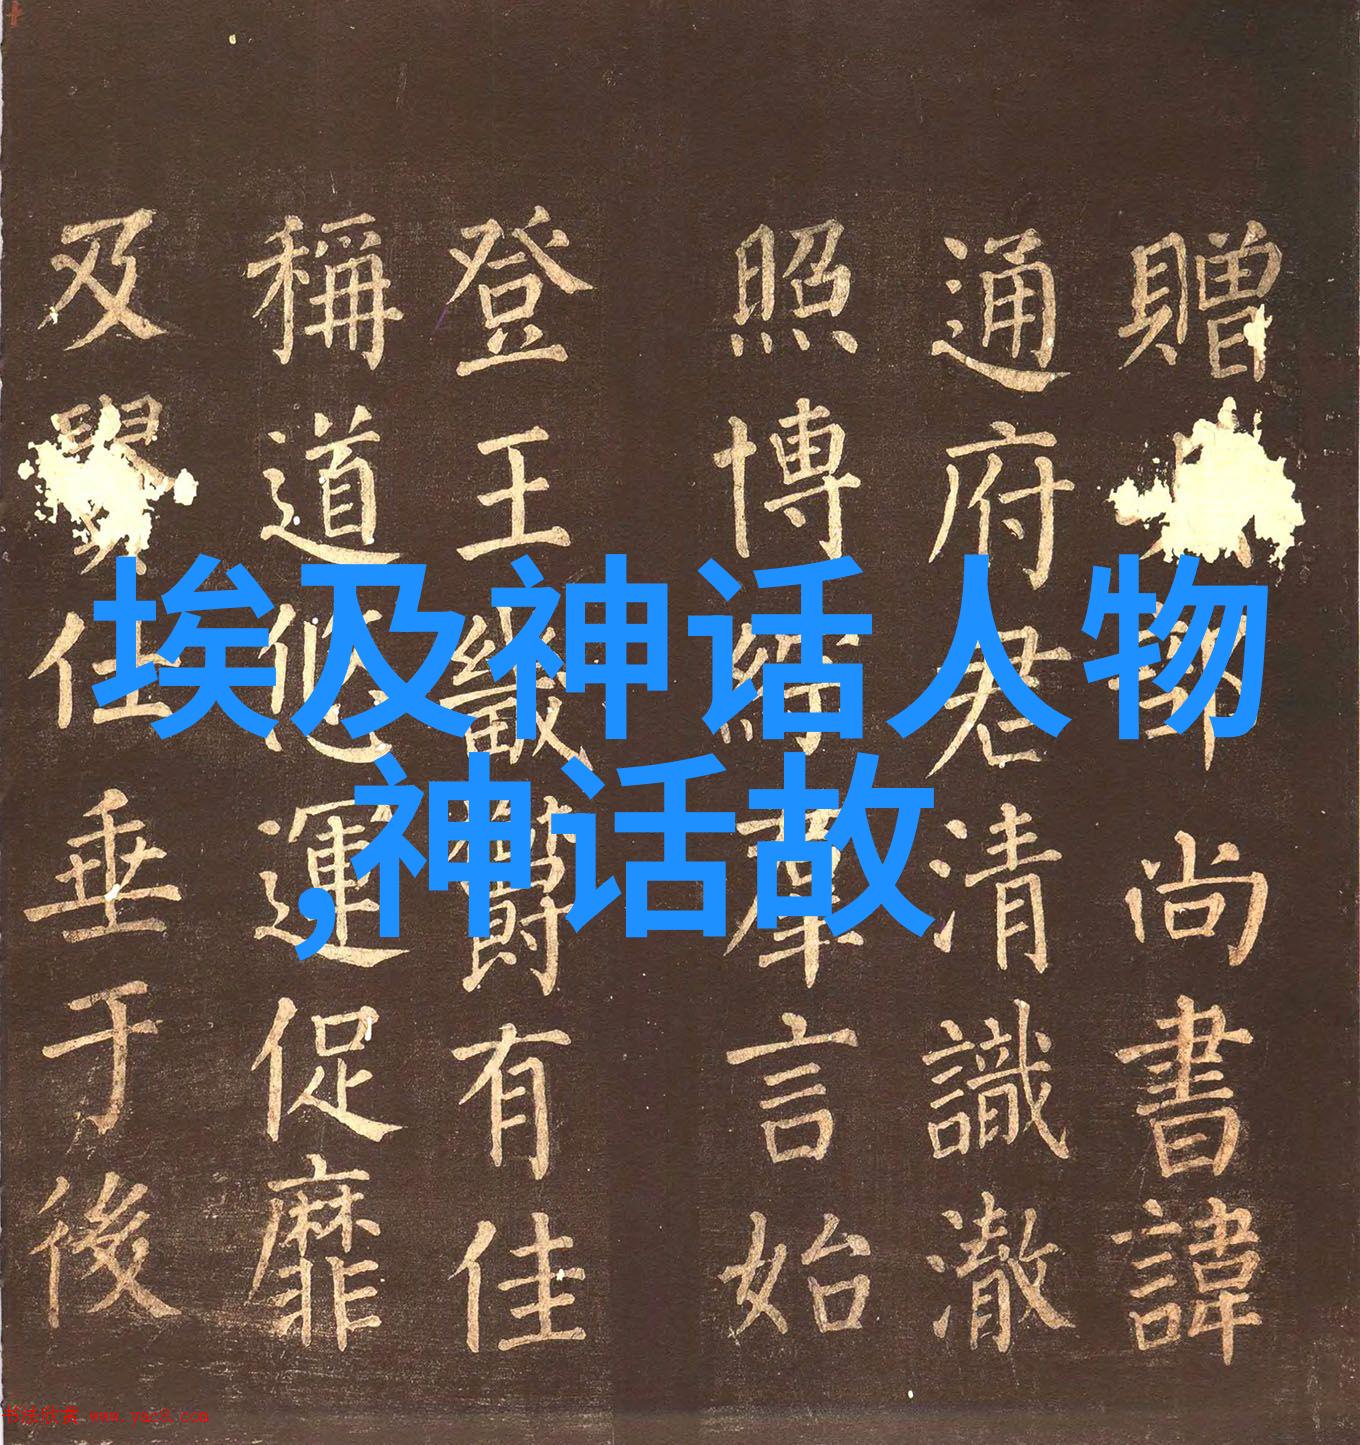 埃及神话人物
,神话故
贈尚書諱
通府君清識澈
照博言始
登王畿有佳
稱道運促靡
及垂于後
书法欣赏 www.yac8.com